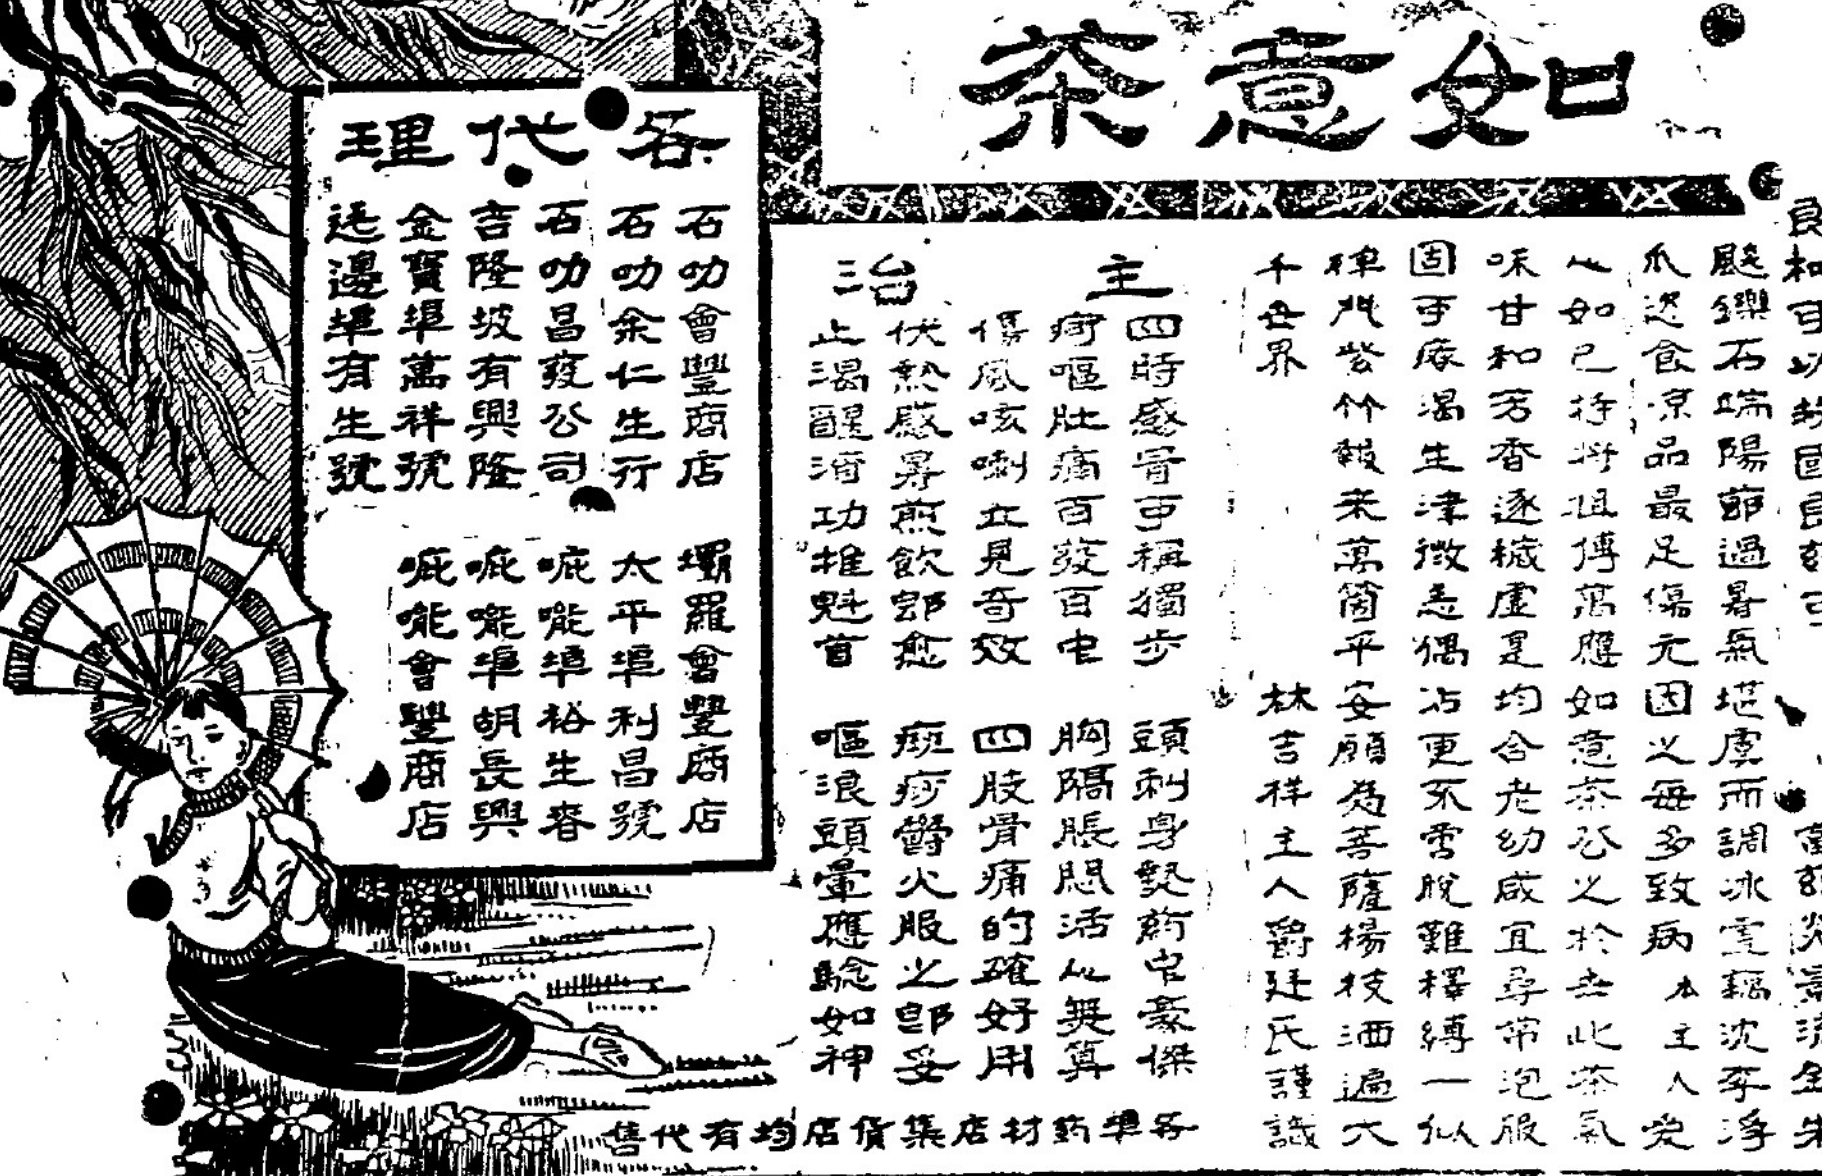 如意茶
良相可以救國良
萬
鑠石端陽節過暑氣
虐而調冰雪藕沈李浮
瓜恣食凉品最足傷元因之每多致病 本主人爰
心如已特將祖傳萬應如意茶公之於世此茶氣
味甘和芳香逐穢虛是均合老幼咸宜尋常泡服
固可療渴生津微恙偶沾更不啻脫難釋縛一似
門紫竹報來萬箇平安願為菩薩楊枝洒遍大
千世界
林吉祥主人爵廷氏謹識
主治
四時感冒可稱獨步
痾嘔肚痛百發百中
傷風咳嗽立見奇效
伏熱感暑煎飲即愈
止渴醒酒功推魁首
頭刺身熱葯中豪傑
胸隔脹悶活人無算
四肢骨痛的確好用
痧疹欝火服之即妥
嘔浪頭暈應驗如神
各埠葯材店集貨店均有代售
各代理
石叻會豐商店
石叻余仁生行
石叻昌發公司
吉隆坡有興隆
金寶埠萬祥號
廷邊埠有生號
壩羅會豐商店
太平埠利昌號
庇能埠裕生春
庇能埠胡長興
庇能會豐商店